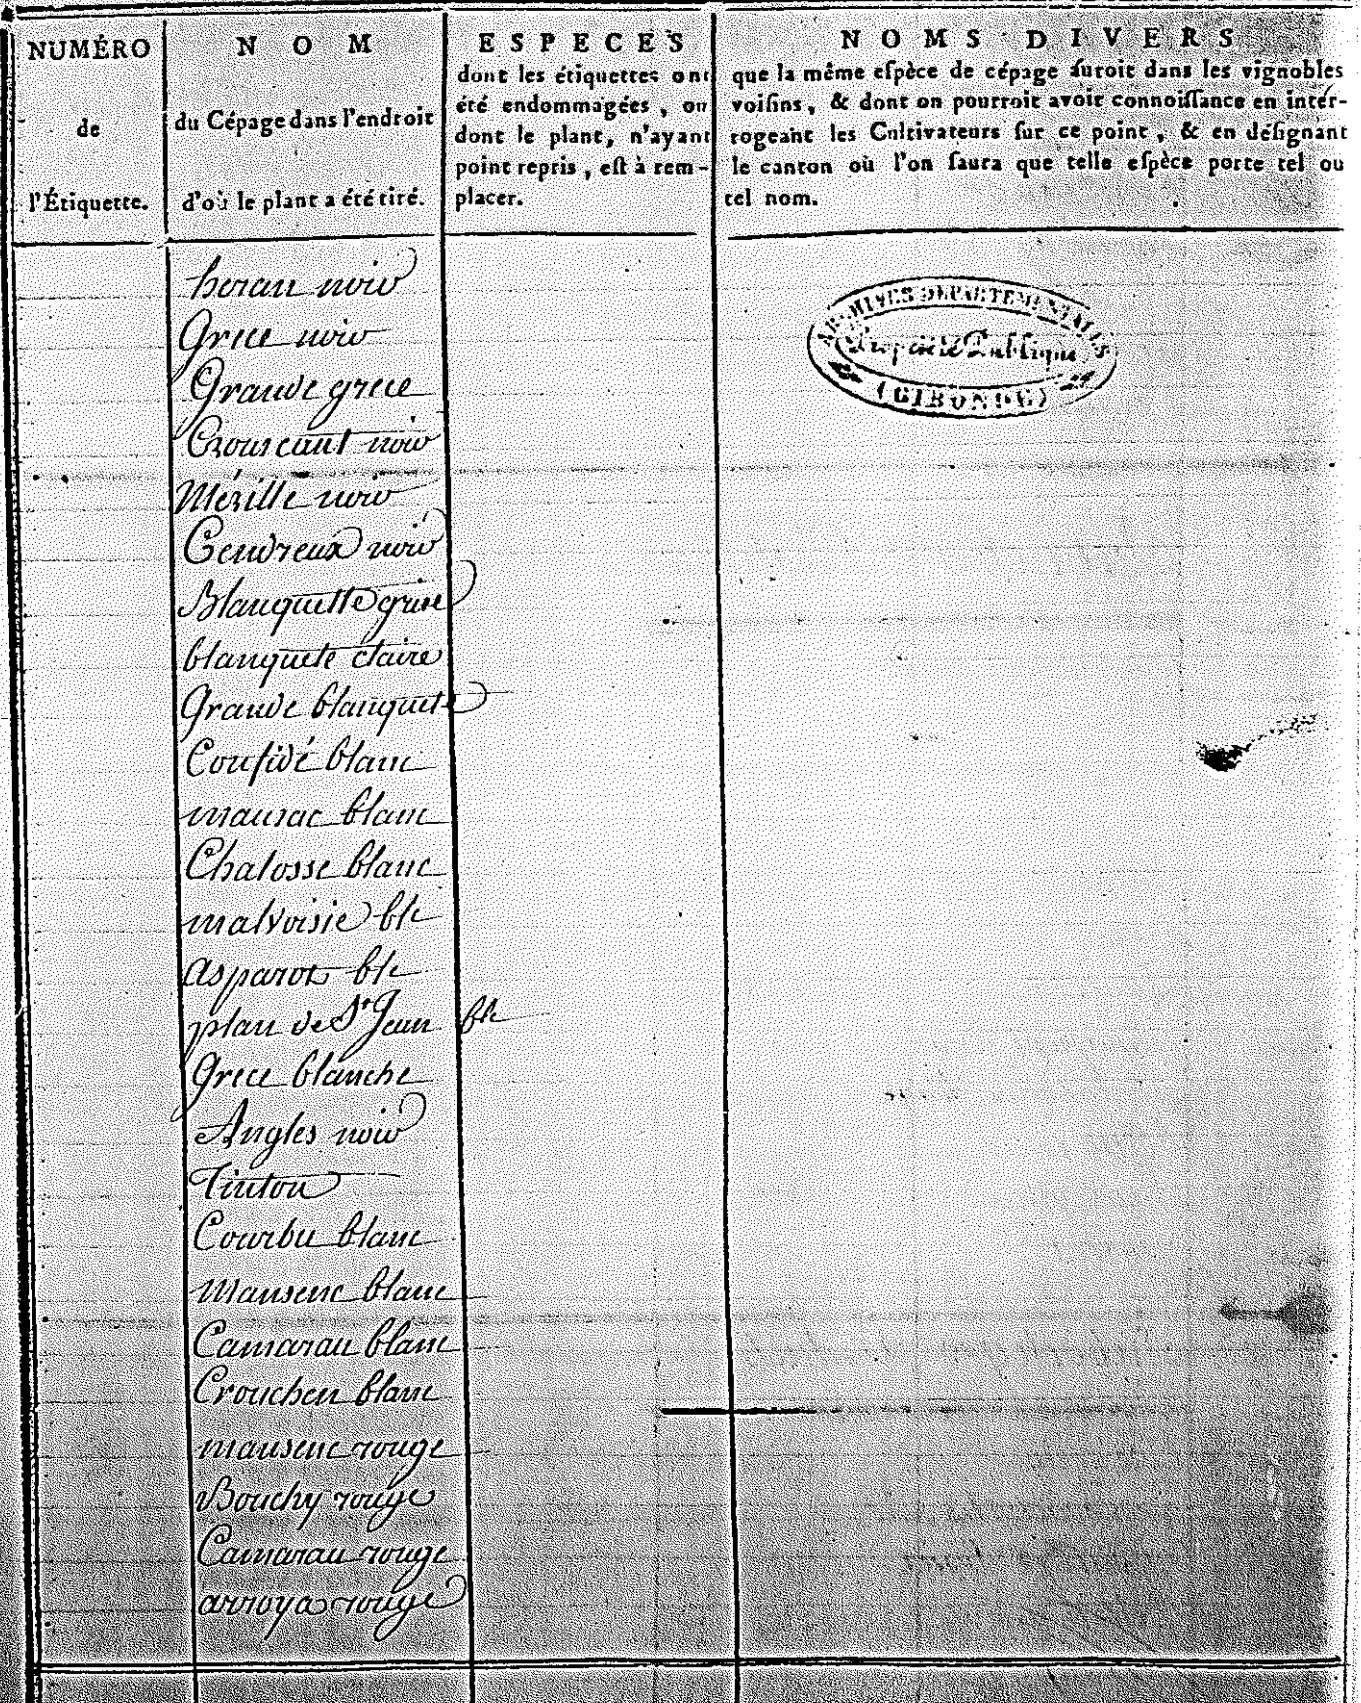 NUMÉRO
de
l'Étiquette.
NOM
du Cépage dans l'endroit
d'où le plant a été tiré.
ESPECES
dont les étiquettes ont
été endommagées, ou
dont le plant, n'ayant
point repris, est à rem-
placer.
NOMS DIVERS
que la même eſpèce de cépage auroit dans les vignobles
voiſins, & dont on pourroit avoir connoiſſance en inter-
rogeant les Cultivateurs ſur ce point, & en déſignant
le canton où l'on ſaura que telle eſpèce porte tel ou
tel nom.
heran noir
Grece noir
Grande grece
Crouscant noir
Mérille noir
Cendreux noir
Blanquette grise
blanquete claire
Grande blanquete
Confidé blanc
mausac blanc
Chalosse blanc
malvoisie blc
asparots blc
plan de St Jean blc
Grece blanche
Angles noir
Tinton
Courbu blanc
Mansenc blanc
Camarau blanc
Crouchen blanc
mansenc rouge
Bouchy rouge
Camarau rouge
arroya rouge
ARCHIVES DÉPARTEMENTALES
Propriété Publique
(GIRONDE)